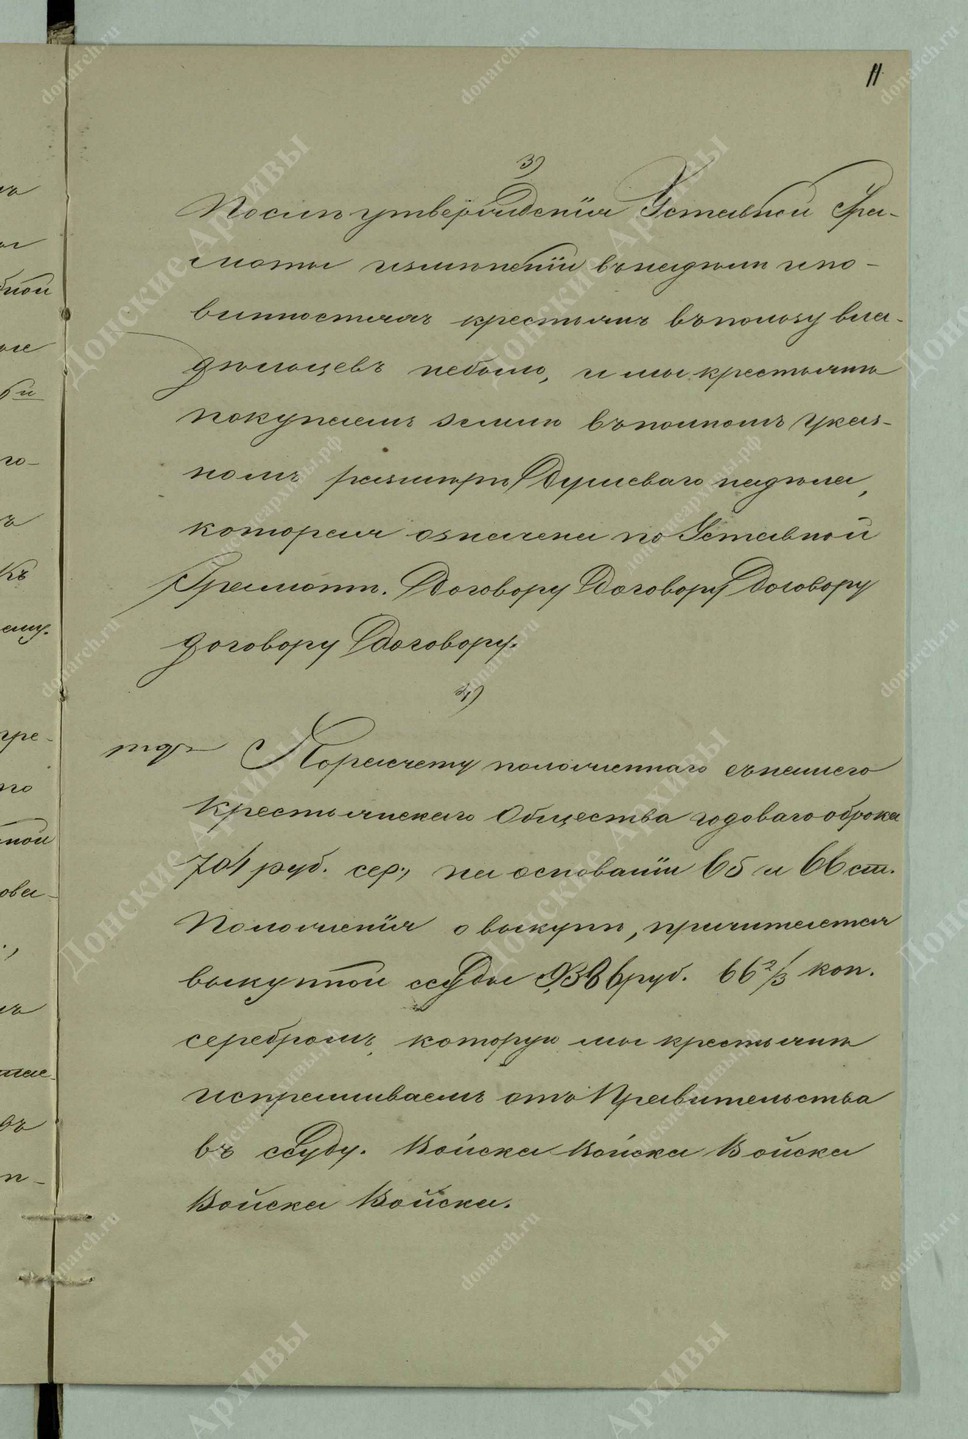 11
3)
После утвержденія Уставной Гра-
моты измѣненій въ надѣлѣ и по-
винностяхъ крестьянъ въ пользу вла-
дѣльцевъ небыло, и мы крестьяне
покупаемъ землю въ полномъ указ-
номъ размѣрѣ Душеваго надѣла,
которая означена по Уставной
Грамотѣ. Договору Договору Договору
договору Договору.
4)
По разчету положеннаго съ нашего
Крестьянскаго Общества годоваго оброка
704 руб. сер., на основаніи 65 и 66 ст.
Положенія о выкупѣ, причитается
выкупной ссуды 9386 руб. 66 2/3 коп.
серебромъ, которую мы крестьяне
испрашиваемъ отъ Правительства
въ ссуду. Войска Войска Войска
Войска Войска.